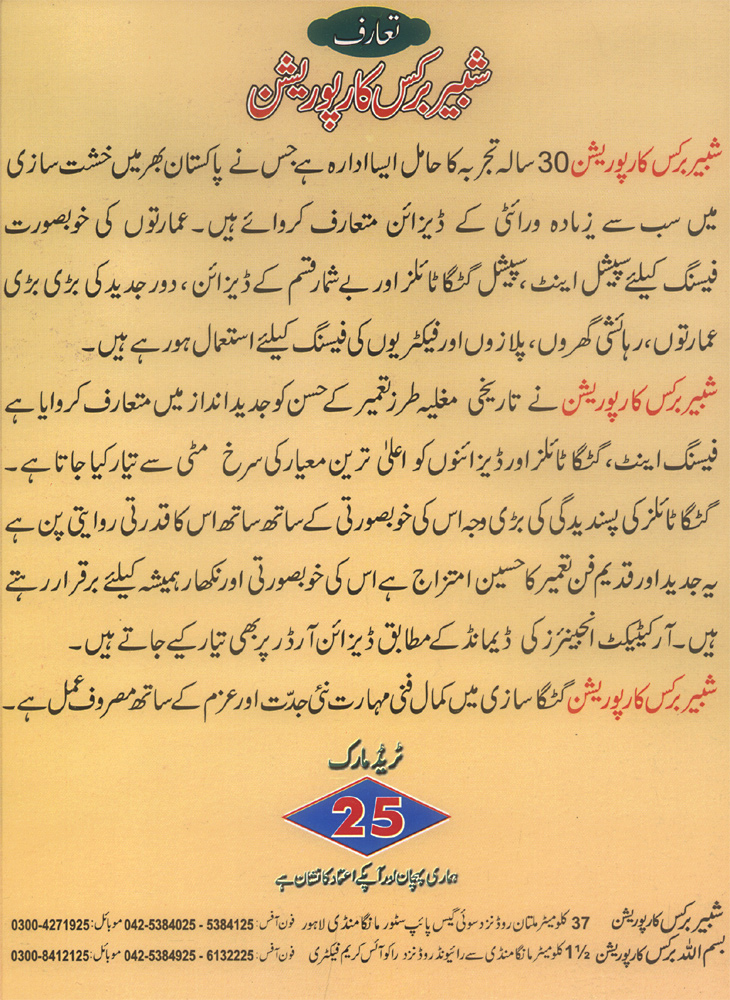 تعارف
شبیر برکس کارپوریشن
شبیر برکس کارپوریشن 30 سالہ تجربہ کا حامل ایسا ادارہ ہے جس نے پاکستان بھر میں خشت سازی
میں سب سے زیادہ ورائٹی کے ڈیزائن متعارف کروائے ہیں۔ عمارتوں کی خوبصورت
فیسنگ کیلئے سپیشل اینٹ، سپیشل گٹگا ٹائلز اور بے شمار قسم کے ڈیزائن، دور جدید کی بڑی بڑی
عمارتوں، رہائشی گھروں، پلازوں اور فیکٹریوں کی فیسنگ کیلئے استعمال ہو رہے ہیں۔
شبیر برکس کارپوریشن نے تاریخی مغلیہ طرز تعمیر کے حسن کو جدید انداز میں متعارف کروایا ہے
فیسنگ اینٹ، گٹگا ٹائلز اور ڈیزائنوں کو اعلیٰ ترین معیار کی سرخ مٹی سے تیار کیا جاتا ہے۔
گٹگا ٹائلز کی پسندیدگی کی بڑی وجہ اس کی خوبصورتی کے ساتھ ساتھ اس کا قدرتی روایتی پن ہے
یہ جدید اور قدیم فن تعمیر کا حسین امتزاج ہے اس کی خوبصورتی اور نکھار ہمیشہ کیلئے برقرار رہتے
ہیں۔ آرکیٹیکٹ انجینئرز کی ڈیمانڈ کے مطابق ڈیزائن آرڈر پر بھی تیار کیے جاتے ہیں۔
شبیر برکس کارپوریشن گٹگا سازی میں کمال فنی مہارت نئی جدّت اور عزم کے ساتھ مصروف عمل ہے۔
ٹریڈ مارک
25
ہماری پہچان اور آپکے اعتماد کا نشان ہے
شبیر برکس کارپوریشن 37 کلومیٹر ملتان روڈ نزد سوئی گیس پائپ سٹور مانگا منڈی لاہور فون آفس: 5384125 - 042-5384025 موبائل: 0300-4271925
بسم اللہ برکس کارپوریشن 1½ کلومیٹر مانگا منڈی سے رائیونڈ روڈ نزد راکو آئس کریم فیکٹری فون آفس: 6132225 - 042-5384925 موبائل: 0300-8412125